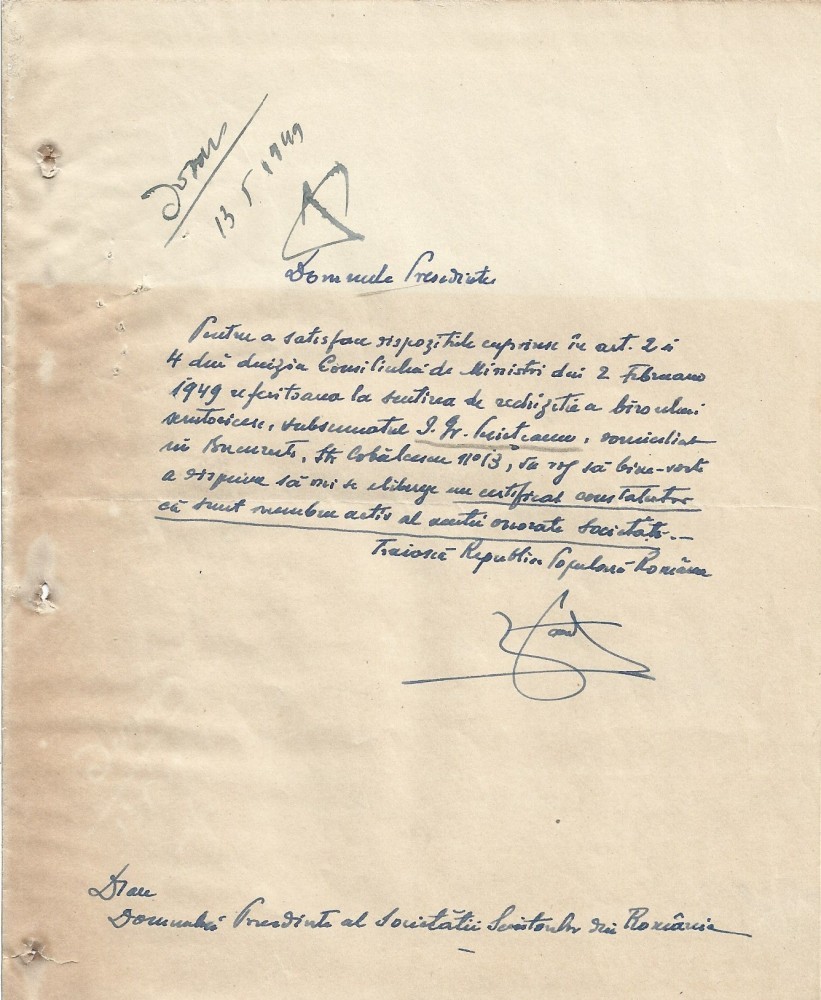 13 V 1949
Domnule Presedinte
Pentru a satisface dispozițiile cuprinse în art. 2 si
4 din decizia Consiliului de Ministri din 2 Februarie
1949 referitoare la scutirea de rechiziție a biroului
scriitoricesc, subsemnatul I. Gr. , domiciliat
in Bucuresti, Str Cobălcescu No 13, va rog să bine-voiti
a dispune să mi se elibereze un certificat constatator
că sunt membru activ al acestei onorate Societăti.—
Traiască Republica Populară Româna
Dsale
Domnului Presedinte al Societătii Scriitorilor din România